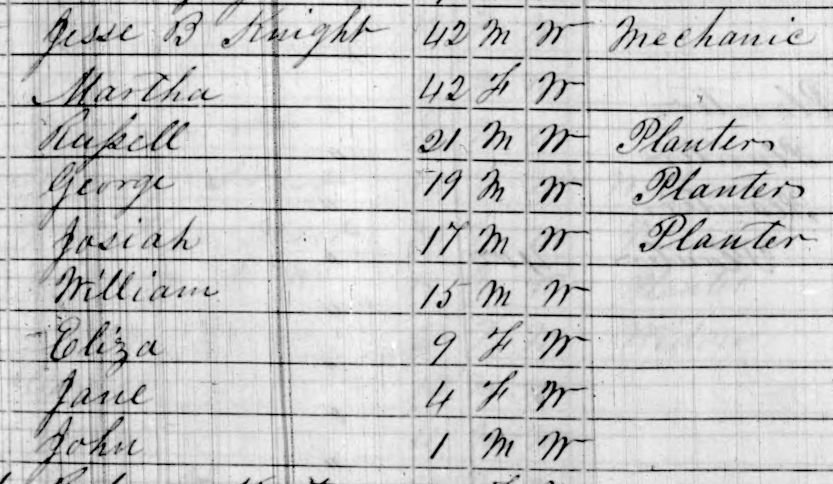 Jesse B Knight 42 M W Mechanic
Martha 42 F W
Russell 21 M W Planter
George 19 M W Planter
Josiah 17 M W Planter
William 15 M W
Eliza 9 F W
Jane 4 F W
John 1 M W